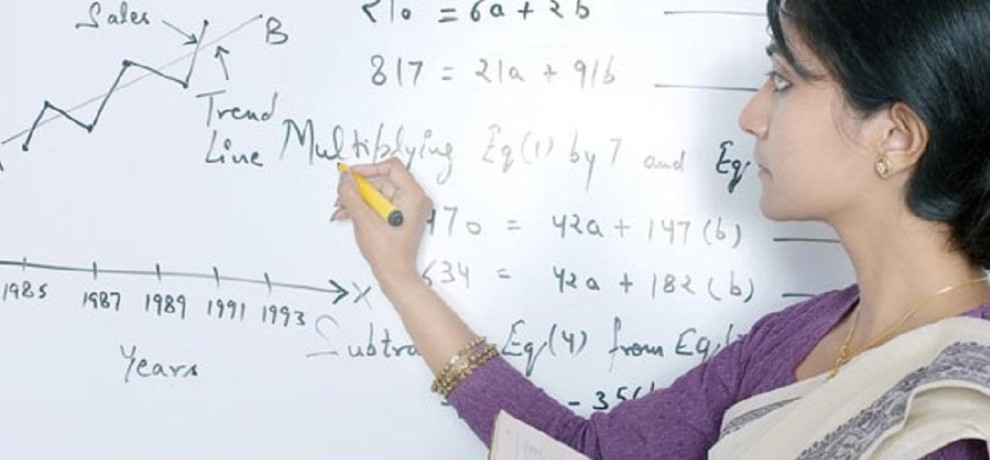 Sales
B
Trend
Line
1985 1987 1989 1991 1993 X
Years
210 = 6a + 2b
817 = 21a + 91b
Multiplying Eq(1) by 7 and Eq
470 = 42a + 147(b)
634 = 42a + 182(b)
Eq(4) from Eq
- 35(